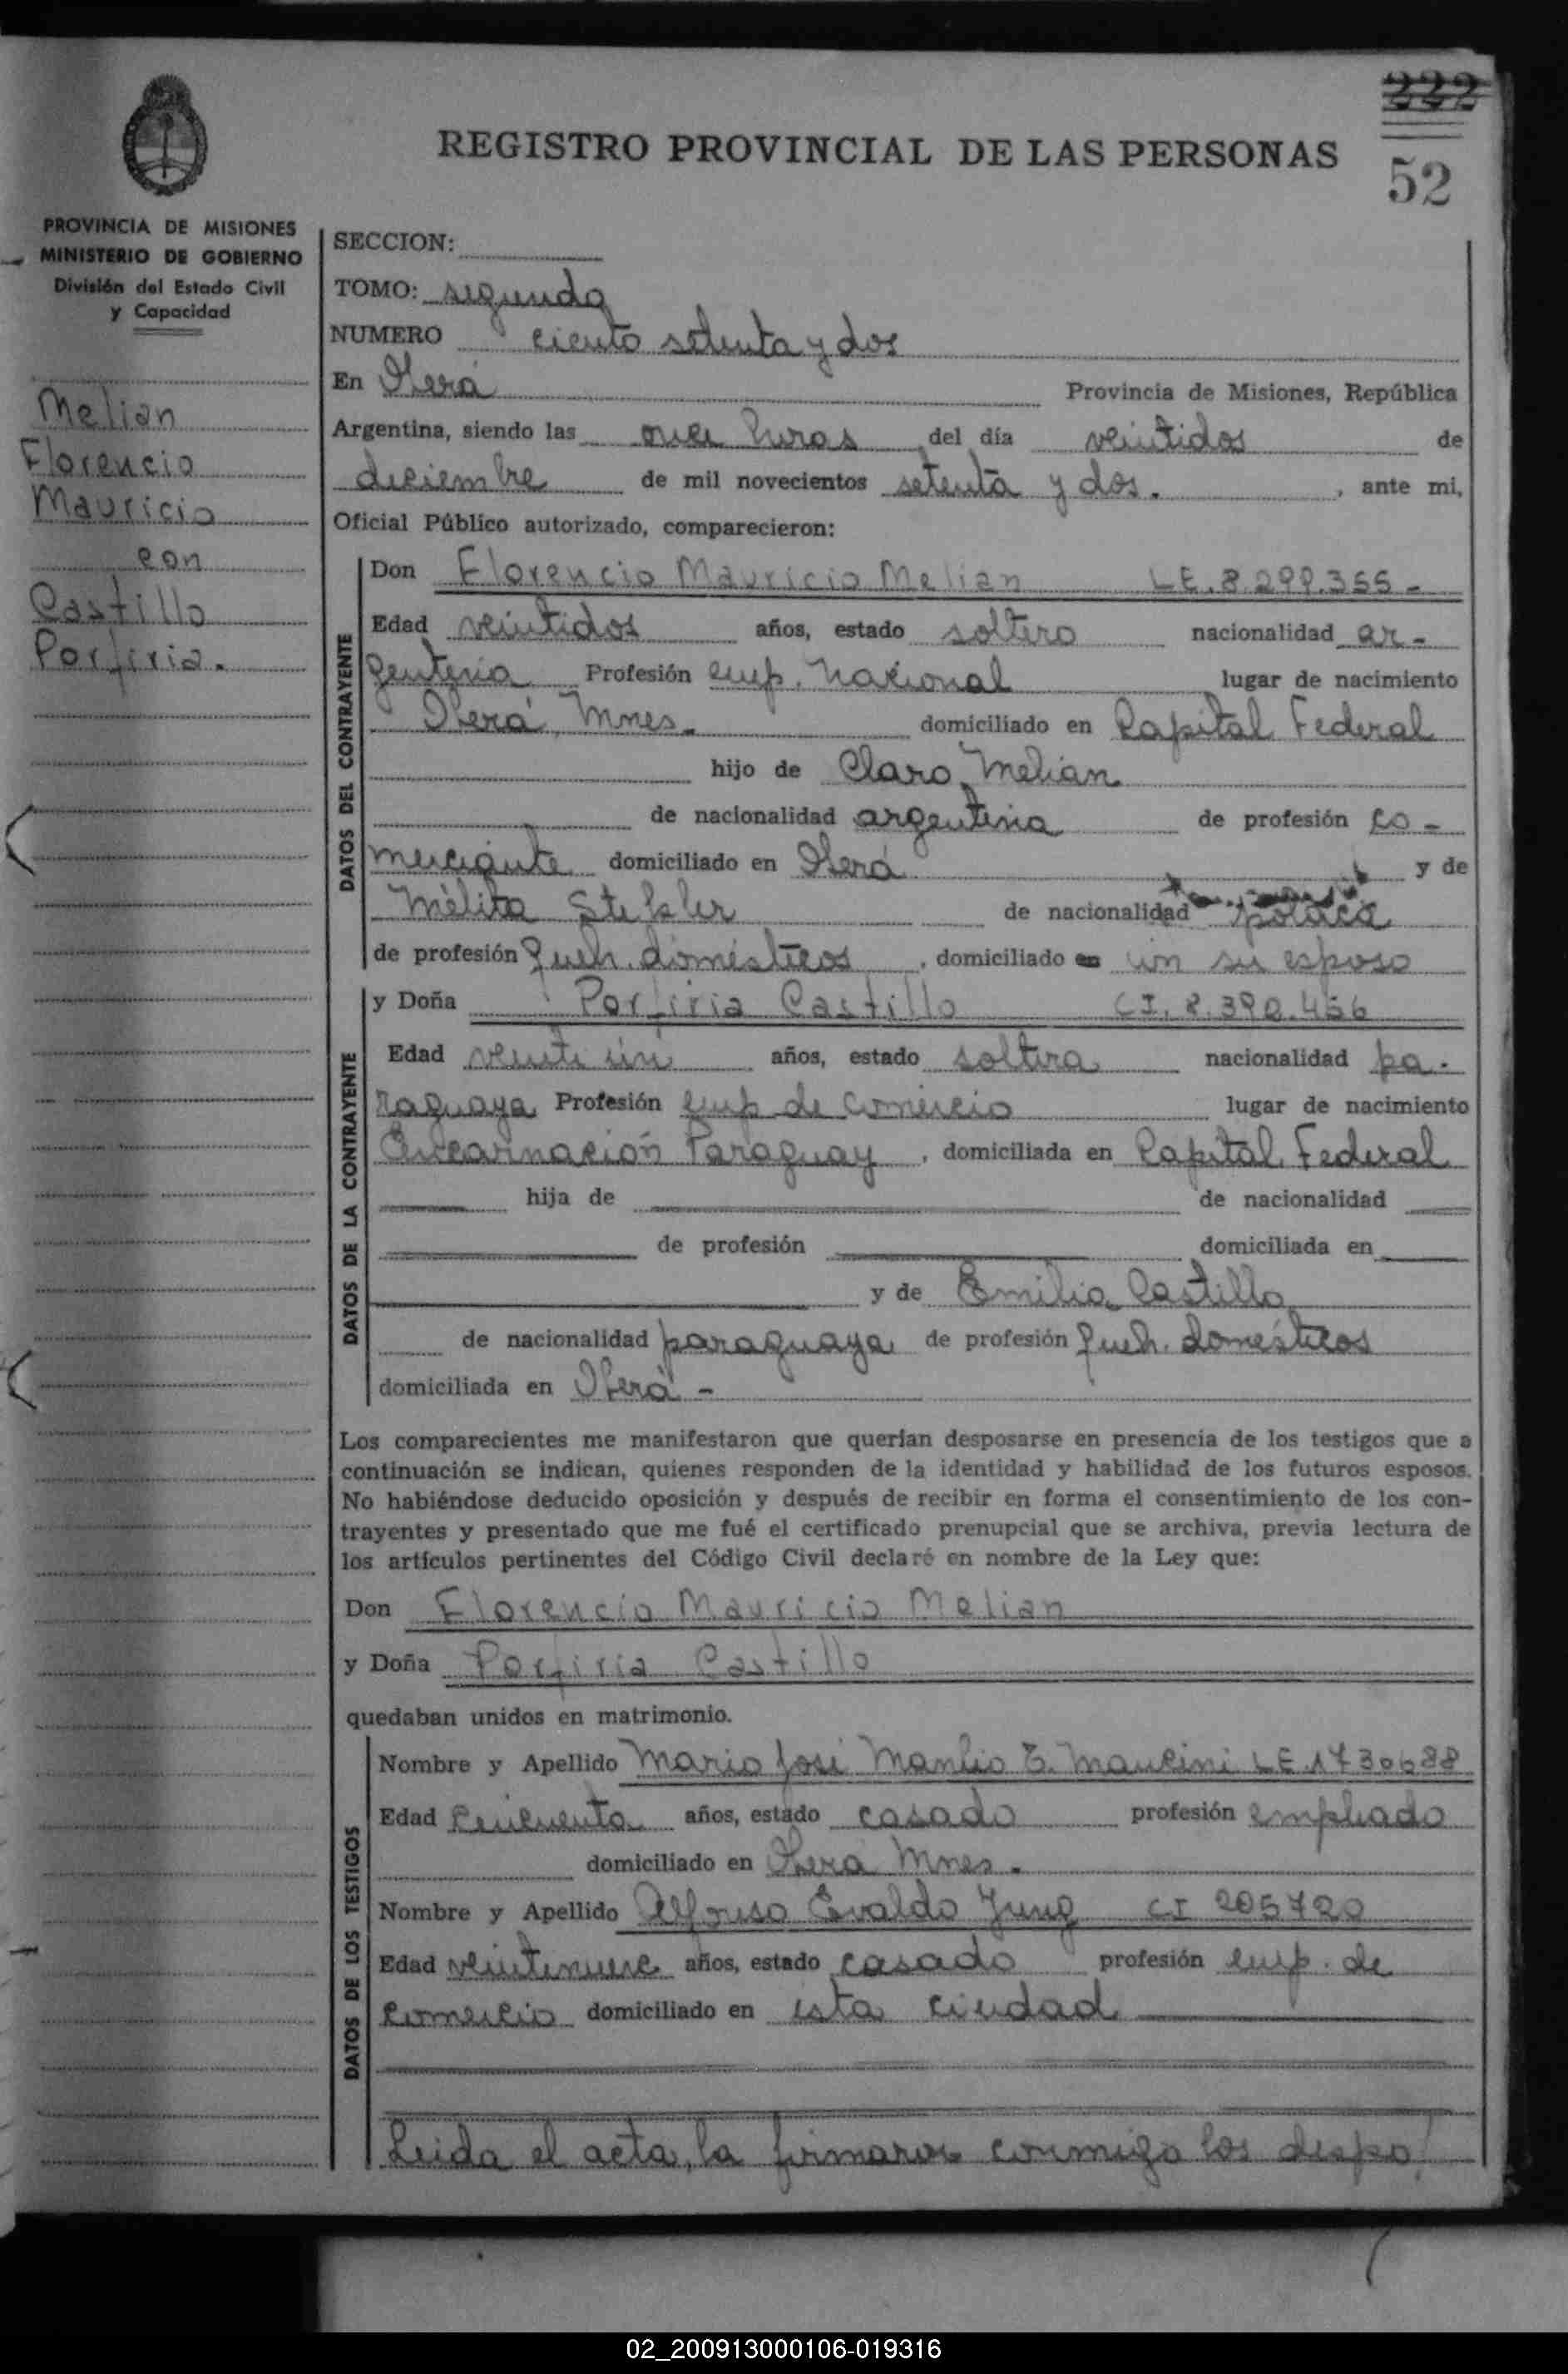 222
52
REGISTRO PROVINCIAL DE LAS PERSONAS
PROVINCIA DE MISIONES
MINISTERIO DE GOBIERNO
División del Estado Civil
y Capacidad
Melian
Florencio
Mauricio
con
Castillo
Porfiria.
SECCION:
TOMO: segundo
NUMERO ciento setenta y dos
En Oberá Provincia de Misiones, República
Argentina, siendo las once horas del día veintidos de
diciembre de mil novecientos setenta y dos. , ante mi,
Oficial Público autorizado, comparecieron:
DATOS DEL CONTRAYENTE
Don Florencio Mauricio Melian LE. 8.299.355-
Edad veintidos años, estado soltero nacionalidad ar-
gentina Profesión emp. Nacional lugar de nacimiento
Oberá, Mnes. domiciliado en Capital Federal
hijo de Claro Melian
de nacionalidad argentina de profesión co-
merciante domiciliado en Oberá y de
Mélita de nacionalidad polaca
de profesión queh. domésticos , domiciliado en con su esposo
DATOS DE LA CONTRAYENTE
y Doña Porfiria Castillo CI. 8.390.456
Edad veinti un años, estado soltera nacionalidad pa-
raguaya Profesión emp de comercio lugar de nacimiento
Encarnación Paraguay , domiciliada en Capital Federal
hija de de nacionalidad
de profesión domiciliada en
y de Emilia Castillo
de nacionalidad paraguaya de profesión queh. domésticos
domiciliada en Oberá -
Los comparecientes me manifestaron que querían desposarse en presencia de los testigos que a
continuación se indican, quienes responden de la identidad y habilidad de los futuros esposos.
No habiéndose deducido oposición y después de recibir en forma el consentimiento de los con-
trayentes y presentado que me fué el certificado prenupcial que se archiva, previa lectura de
los artículos pertinentes del Código Civil declaré en nombre de la Ley que:
Don Florencio Mauricio Melian
y Doña Porfiria Castillo
quedaban unidos en matrimonio.
DATOS DE LOS TESTIGOS
Nombre y Apellido Mario José Manlio E. Mancini LE 1730688
Edad cincuenta años, estado casado profesión empleado
domiciliado en Oberá Mnes.
Nombre y Apellido Alfonso Evaldo Jung CI 205720
Edad veintenueve años, estado casado profesión emp. de
comercio domiciliado en esta ciudad
Leida el acta, la firmaron conmigo los despo
02_200913000106-019316